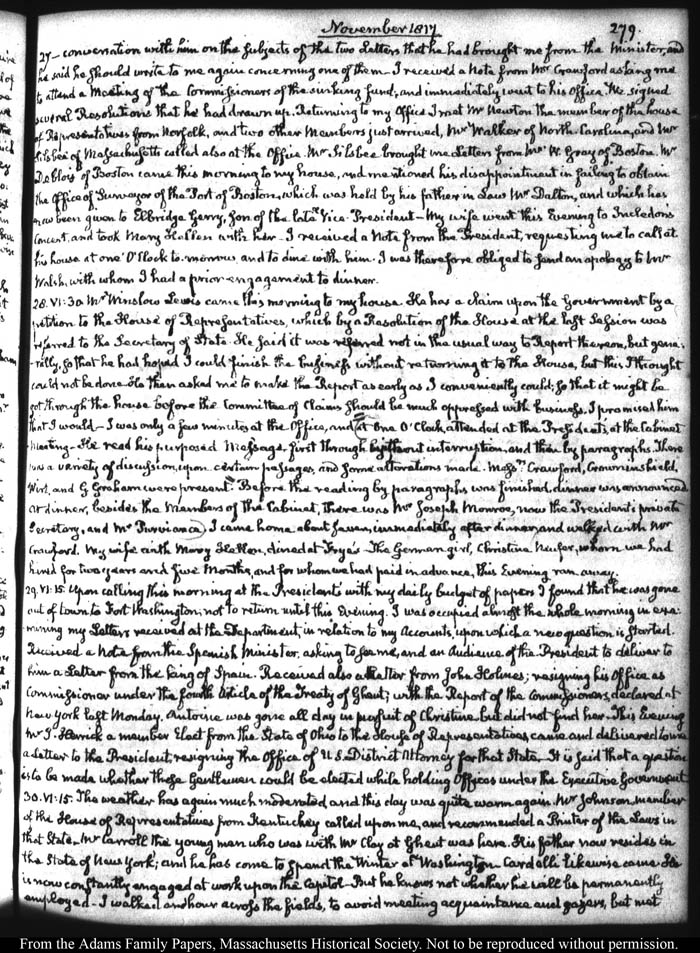 November 1817
279.
27 - conversation with him on the subjects of the two Letters that he had brought me from the Minister, and
he said he should write to me again concerning one of them - I received a Note from Mr Crawford asking me
to attend a Meeting of the Commissioners of the sinking fund, and immediately went to his Office. We signed
several Resolutions that he had drawn up. Returning to my Office I met Mr Newton the member of the house
of Representatives from Norfolk, and two other Members just arrived, Mr Walker of North Carolina, and Mr
Silsbee of Massachusetts called also at the Office. Mr Silsbee brought me Letters from Mr W. Gray of Boston. Mr
DeBlois of Boston came this morning to my house, and mentioned his disappointment in failing to obtain
the Office of Surveyor of the Port of Boston, which was held by his father in Law Mr Dalton, and which has
now been given to Elbridge Gerry, Son of the late Vice-President - My wife went this Evening to Incledon's
Concert, and took Mary Hellen with her - I received a Note from the President, requesting me to call at
his house at one O'Clock to-morrow, and to dine with him. I was therefore obliged to send an apology to Mr
Walsh, with whom I had a prior engagement to dinner.
28. VI:30. Mr Winslow Lewis came this morning to my house. He has a claim upon the Government by a
petition to the House of Representatives, which by a Resolution of the House at the last Session was
referred to the Secretary of State. He said it was referred not in the usual way to Report thereon, but gene-
rally, so that he had hoped I could finish the business without returning it to the House, but this I thought
could not be done. He then asked me to make the Report as early as I conveniently could; so that it might be
got through the house before the Committee of Claims should be much oppressed with business. I promised him
that I would - I was only a few minutes at the Office, and at One O'Clock, attended at the President's, at the Cabinet
Meeting - He read his purposed Message, first through without interruption, and then by paragraphs. There
was a variety of discussion, upon certain passages, and some alterations made. Messrs Crawford, Crowninshield,
Wirt, and G Graham were present. Before the reading by paragraphs was finished, dinner was announced
At dinner, besides the Members of the Cabinet, there was Mr Joseph Monroe, now the President's private
Secretary, and Mr Purviance. I came home about seven, immediately after dinner, and walked with Mr
Crawford. My wife with Mary Hellen, dined at Frye's - The German girl, Christina Neufer, whom we had
hired for two years and five Months, and for whom we had paid in advance, this Evening ran away.
29. VI:15. Upon calling this morning at the President's with my daily budget of papers I found that he was gone
out of town to Fort Washington; not to return until this Evening. I was occupied almost the whole morning in exa-
mining my Letters received at the Department, in relation to my Accounts, upon which a new question is started.
Received a Note from the Spanish Minister, asking to see me, and an Audience of the President to deliver to
him a Letter from the King of Spain. Received also a Letter from John Holmes; resigning his Office as
Commissioner under the fourth article of the Treaty of Ghent; with the Report of the Commissioners, declared at
New York last Monday. Antoine was gone all day in pursuit of Christine but did not find her. This Evening
Mr S. Herrick a member Elect from the State of Ohio to the House of Representatives, came and delivered to me
a Letter to the President, resigning the Office of U.S. District Attorney for that State. It is said that a question
is to be made whether these Gentlemen could be elected while holding Offices under the Executive Government
30. VI:15. The weather has again much moderated, and this day was quite warm again. Mr Johnson, member
of the House of Representatives from Kentucky called upon me, and recommended a Printer of the Laws in
that State. Mr Carroll the young man who was with Mr Clay at Ghent was here. His father now resides in
the State of New York; and he has come to spend the Winter at Washington. Cardelli likewise came. He
is now constantly engaged at work upon the Capitol - But he knows not whether he will be permanently
employed - I walked an hour across the fields, to avoid meeting acquaintance and gazers, but met
From the Adams Family Papers, Massachusetts Historical Society. Not to be reproduced without permission.